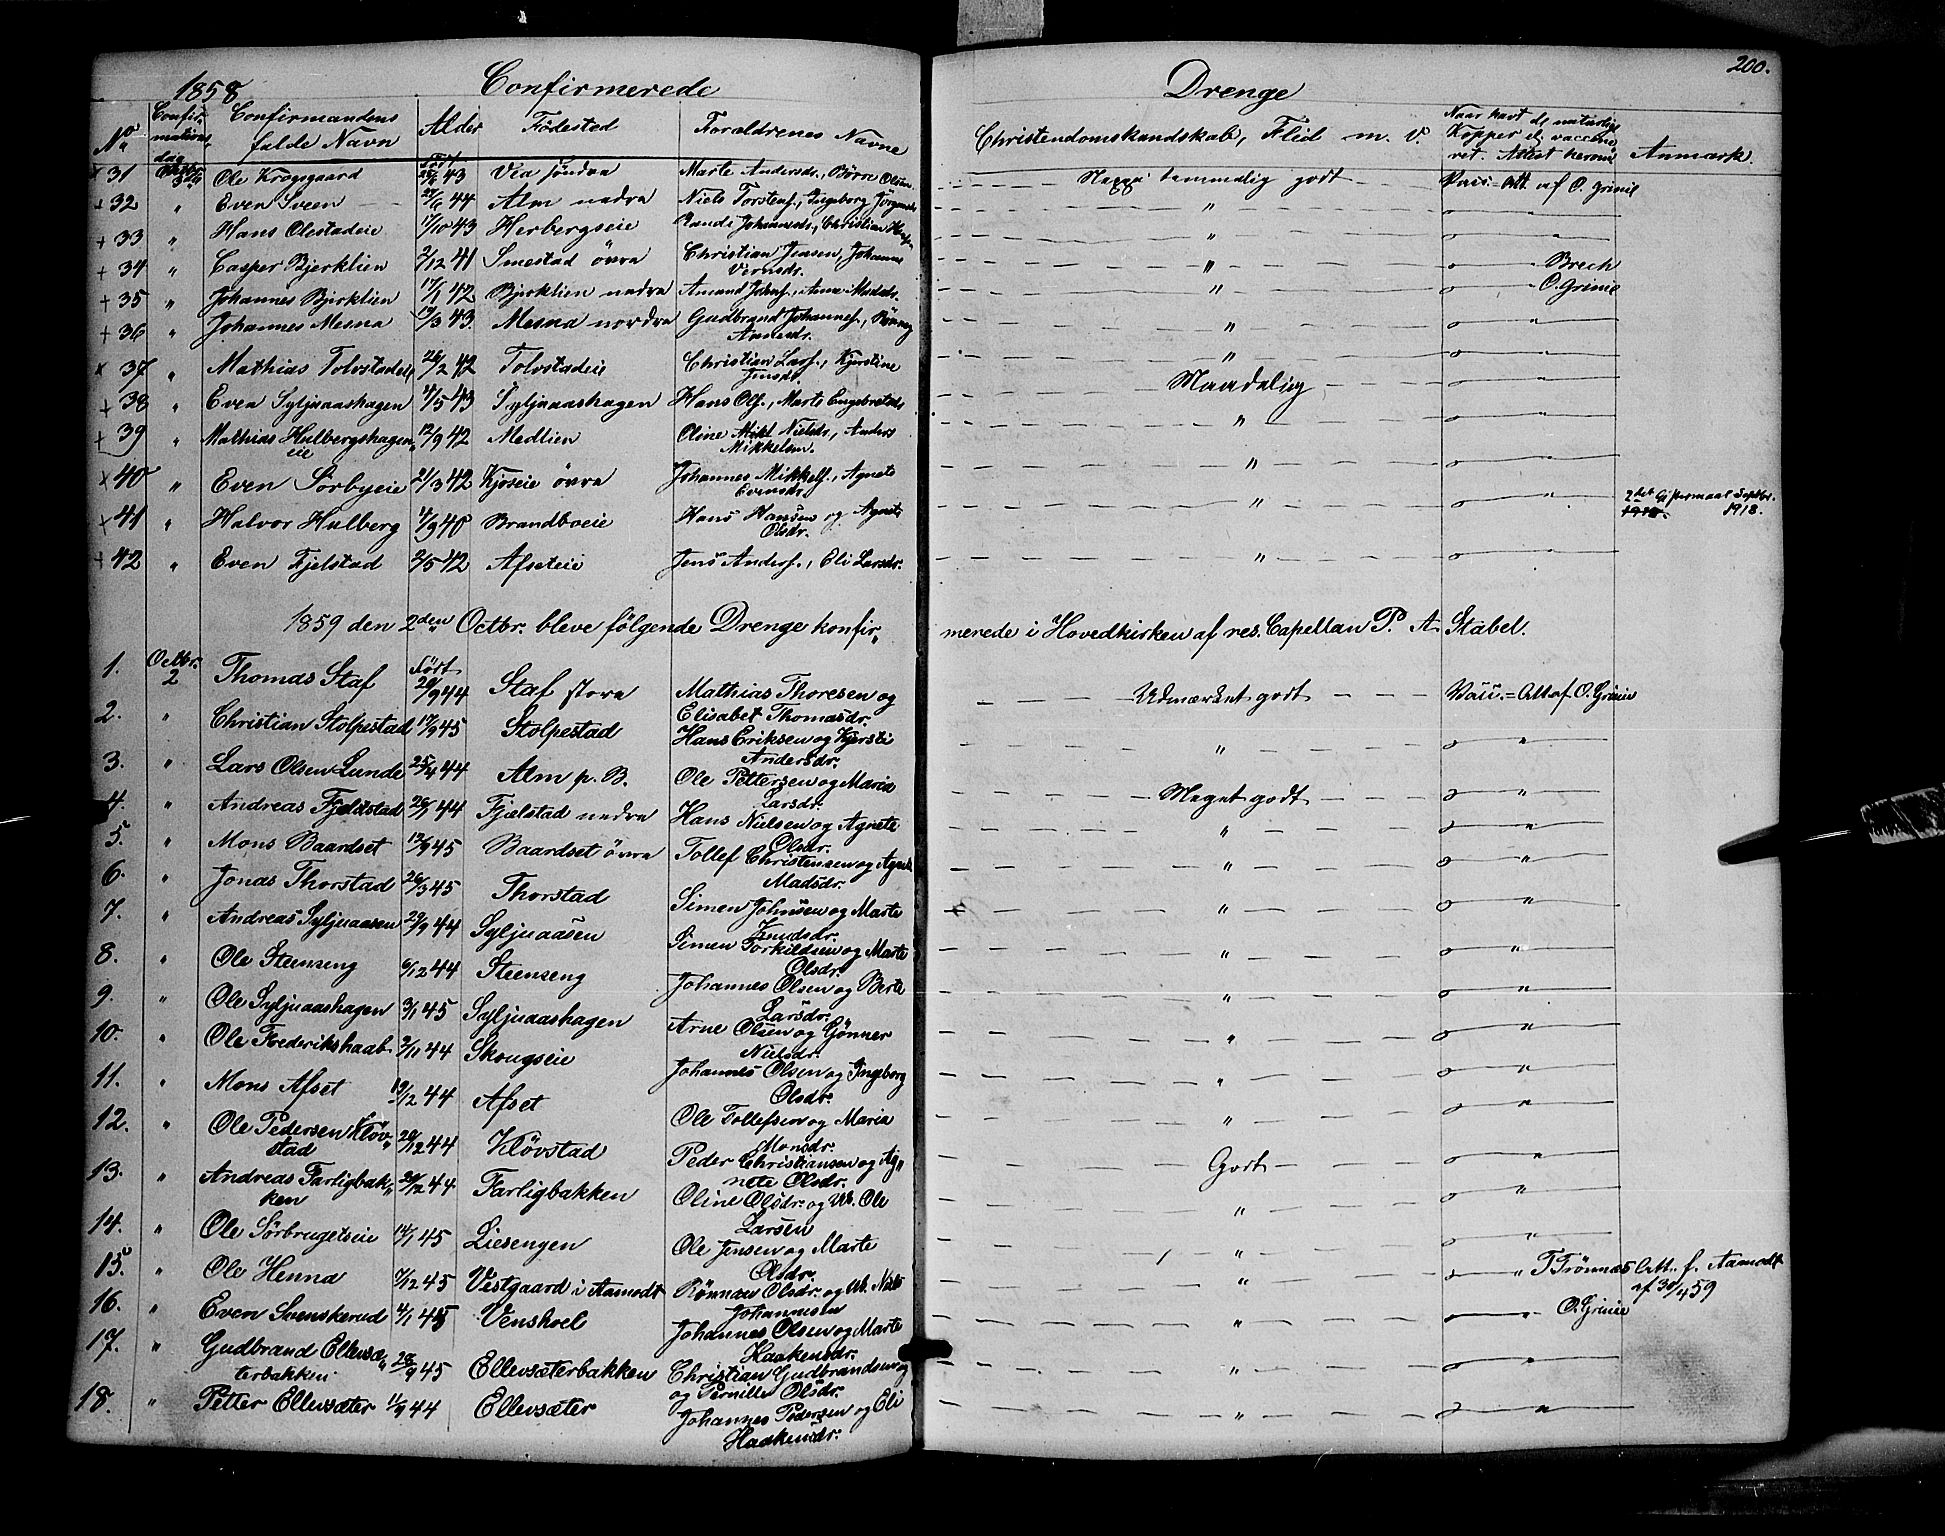 1858 Confirmerede Drenge 200.
No Confirmations dag Confirmandens fulde Navn Alder Födested Forældrenes Navne Christendomskundskab, Flid m. v. Naar havt de naturlige Kopper el. vaccineret. Attest herom Anmærk.
31 Ole Krogsgaard Født 43 Vea söndra Marte Andersdr., Börre Olsen Meget temmelig godt Vacc.=Att. af O. Grimie
32 " Even Sveen 44 Alm nedra Niels Torstens., Ingeborg "
33 " Hans Olestadeie 17/10 43 Herbergseie Johannesdr., Christian "
34 " Casper Bjerklien 2/12 41 Smestad övra Christian Jensen, Johanne " " Brech
35 " Johannes Bjerklien 17/1 42 Bjerklien nedra Amund " " O. Grimie
36 " Johannes Mesna 19/3 43 Mesna nordra Gudbrand Johannes., Rönnoug Arnesdr. " "
37 " Mathias Tolvstadeie 26/2 42 Tolvstadeie Christian Lars., Kjerstine Jensdt. " "
38 " Even Syljuaashagen 4/5 43 Syljuaashagen Hans Ols., Marte Engebretsdr Maadelig "
39 " Mathias Hulbergshageneie 12/9 42 Medlien Oline Nielsdr, Anders Mikkelsen. " "
40 " Even Sörbyeie 21/3 42 Kjoseie övra Johannes Mikkels., Agnete Evensdr. " "
41 " Halvor Hulberg 4/9 40 Brandboeie Hans Hansen og Agnete Olsdr. " " 2det Giftermaal Septbr. 1918.
42 " Even Fjelstad 2/5 42 Afseteie Jens Anders., Eli Larsdr. " "
1859 den 2den Octbr. bleve fölgende Drenge konfirmerede i Hovedkirken af res. Capellan P. A. Stabel.
1. Octbr. 2 Thomas Staf Født 20/9 44 Staf stora Mathias Thoresen og Elisabet Thomasdr. Udmærket godt Vacc.=Att af O. Grimie
2. " Christian Stolpestad 17/9 45 Stolpestad Hans Eriksen og Kjersti Andersdr. " "
3. " Lars Olsen Lunde 25/4 44 Alm p. B. Ole Pettersen og Maria Larsdr. Meget godt "
4. " Andreas Fjelstad 26/1 44 Fjelstad nedra Hans Nielsen og Agnete Olsdr. " "
5. " Mons Baardset 45 Baardset övra Tollef Christensen og Agnete Madsdr. " "
6. " Jonas Thorstad 26/3 45 Thorstad Simen Johnsen og Marte Knudsdr. " "
7. " Andreas Syljuaasen 29/9 44 Syljuaasen Simen Torkildsen og Marte Olsdr. " "
8. " Ole Steenseng 6/12 44 Steenseng Johannes Olsen og Berte Larsdr. " "
9. " Ole Syljuaashagen 3/1 45 Syljuaashagen Arne Olsen og Gönner Nielsdr. " "
10. " Ole Frederikshaab 2/11 44 Skougseie Johannes Olsen og Ingeborg Olsdr. " "
11. " Mons Afset 19/12 44 Afset Ole Tollefsen og Maria Monsdr. " "
12. " Ole Pedersen Klövstad 20/12 44 Klövstad Peder Christiansen og Agnete Olsdr. Godt "
13. " Andreas Farligbakken 26/12 44 Farligbakken Oline Olsdr. og Uk. Ole Larsen " "
14. " Ole Sörbrugetseie 14/1 45 Liesengen Ole Jensen og Marte Olsdr. " "
15. " Ole Henna 7/12 45 Vestgaard i Aamodt Rönnau Olsdr. og Uk. Niels Johannesen " " T Trönnæs Att. f. Aamodt af 30/4 59
16. " Even Svenskerud 4/1 45 Venskoel Johannes Olsen og Marte Haakensdr. " " O. Grimie
17. " Gudbrand Ellevsæterbakken 28/9 45 Ellevsæterbakken Christian Gudbrandsen og og Pernille Olsdr. " "
18. " Petter Ellevsæter 44 Ellevsæter Johannes Pedersen og Eli Haakensdr. " "